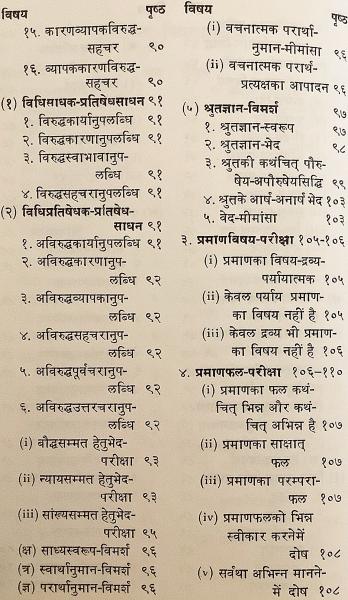 विषय पृष्ठ
१५. कारणव्यापकविरुद्ध-
सहचर ९०
१६. व्यापककारणविरुद्ध-
सहचर ९०
(१) विधिसाधक-प्रतिषेधसाधन ९१
१. विरुद्धकार्यानुपलब्धि ९१
२. विरुद्धकारणानुपलब्धि ९१
३. विरुद्धस्वाभावानुप-
लब्धि ९१
४. विरुद्धसहचरानुपलब्धि ९१
(२) विधिप्रतिषेधक-प्रतिषेध-
साधन ९१
१. अविरुद्धकार्यानुपलब्धि ९१
२. अविरुद्धकारणानुप-
लब्धि ९२
३. अविरुद्धव्यापकानुप-
लब्धि ९२
४. अविरुद्धसहचरानुप-
लब्धि ९२
५. अविरुद्धपूर्वचरानुप-
लब्धि ९२
६. अविरुद्धउत्तरचरानुप-
लब्धि ९२
(i) बौद्धसम्मत हेतुभेद-
परीक्षा ९३
(ii) न्यायसम्मत हेतुभेद-
परीक्षा ९३
(iii) सांख्यसम्मत हेतुभेद-
परीक्षा ९५
(क्ष) साध्यस्वरूप-विमर्श ९६
(त्र) स्वार्थानुमान-विमर्श ९६
(ज्ञ) परार्थानुमान-विमर्श ९६
विषय पृष्ठ
(i) वचनात्मक परार्था-
नुमान-मीमांसा ९६
(ii) वचनात्मक परार्थ-
प्रत्यक्षका आपादन ९६
(५) श्रुतज्ञान-विमर्श ९७
१. श्रुतज्ञान-स्वरूप ९७
२. श्रुतज्ञान-भेद ९८
३. श्रुतकी कथंचित् पौरु-
षेय-अपौरुषेयसिद्धि ९९
४. श्रुतके आर्ष-अनार्ष भेद १०३
५. वेद-मीमांसा १०३
३. प्रमाणविषय-परीक्षा १०५-१०६
(i) प्रमाणका विषय-द्रव्य-
पर्यायात्मक १०५
(ii) केवल पर्याय प्रमाण-
का विषय नहीं है १०५
(iii) केवल द्रव्य भी प्रमाण-
का विषय नहीं है १०६
४. प्रमाणफल-परीक्षा १०६-११०
(i) प्रमाणका फल कथं-
चित् भिन्न और कथं-
चित् अभिन्न है १०७
(ii) प्रमाणका साक्षात्
फल १०७
(iii) प्रमाणका परम्परा-
फल १०७
(iv) प्रमाणफलको भिन्न
स्वीकार करनेमें
दोष १०८
(v) सर्वथा अभिन्न मानने-
में दोष १०८